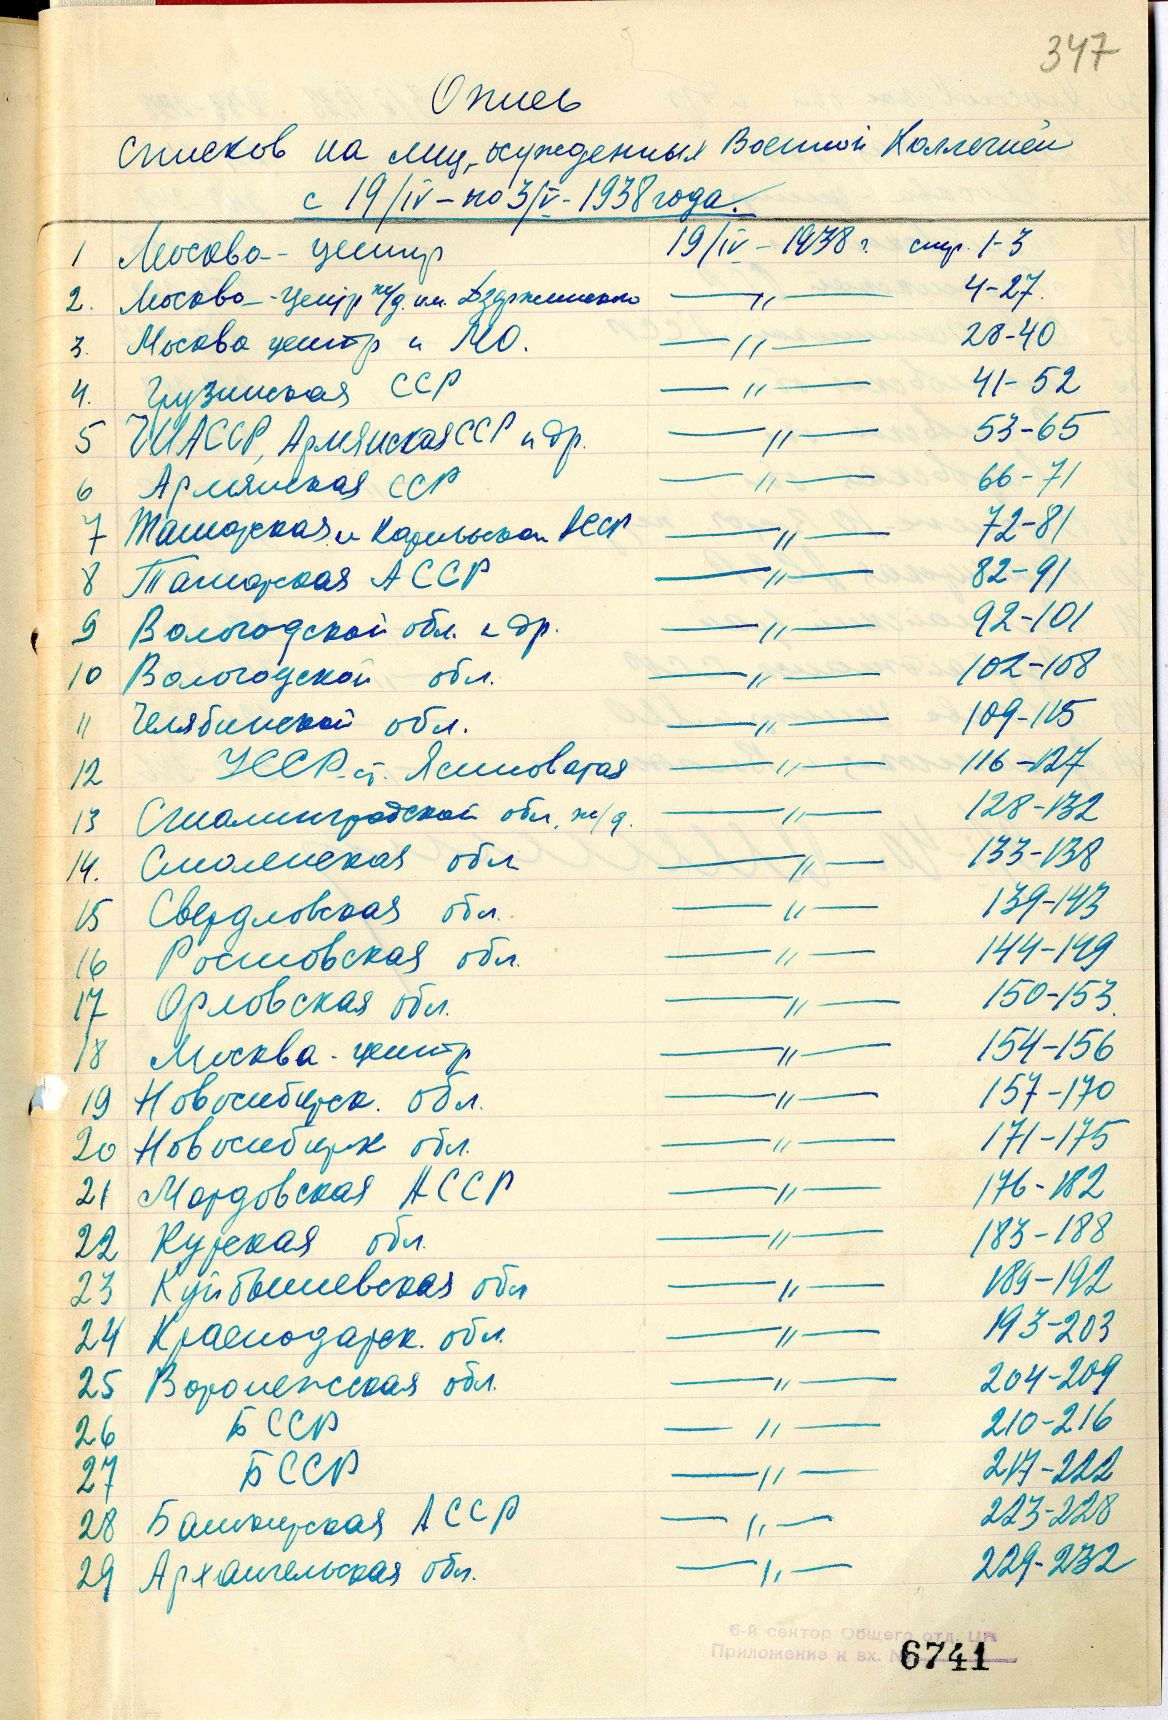 347
Опись
списков на лиц, осужденных Военной Коллегией
с 19/IV – по 3/V – 1938 года.
1 Москва – центр 19/IV – 1938 г. стр. 1-3
2. Москва – центр ж/д. им. Дзержинского —〃— 4-27.
3. Москва центр и МО. —〃— 28-40
4. Грузинская ССР —〃— 41-52
5 ЧИАССР, Армянская ССР и др. —〃— 53-65
6 Армянская ССР —〃— 66-71
7 Татарская и Карельская АССР —〃— 72-81
8 Татарская АССР —〃— 82-91
9 Вологодской обл. и др. —〃— 92-101
10 Вологодской обл. —〃— 102-108
11 Челябинской обл. —〃— 109-115
12 УССР – ст. Ясиноватая —〃— 116-127
13 Сталинградской обл., ж/д. —〃— 128-132
14. Смоленская обл —〃— 133-138
15 Свердловская обл. —〃— 139-143
16 Ростовская обл. —〃— 144-149
17 Орловская обл. —〃— 150-153.
18 Москва - центр —〃— 154-156
19 Новосибирск. обл. —〃— 157-170
20 Новосибирск обл. —〃— 171-175
21 Мордовская АССР —〃— 176-182
22 Курская обл. —〃— 183-188
23 Куйбышевская обл —〃— 189-192
24 Краснодарск. обл. —〃— 193-203
25 Воронежская обл. —〃— 204-209
26 БССР —〃— 210-216
27 БССР —〃— 217-222
28 Башкирская АССР —〃— 223-228
29 Архангельская обл. —〃— 229-232
6-й сектор Общего отд. ЦК
Приложение к вх. № 6741